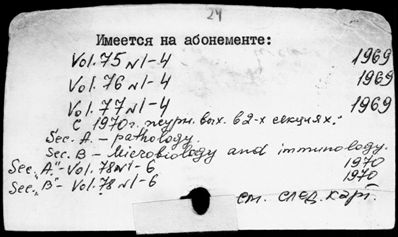 24
Имеется на абонементе:
Vol. 75 №1-4 1969
Vol. 76 №1-4 1969
Vol. 77 №1-4 1969
С 1970г. журн. вых. в 2-х секциях:
Sec. A. - pathology.
Sec. B - Microbiology and immunology.
Sec. "A" - Vol. 78 №1-6 1970
Sec. "B" - Vol. 78 №1-6 1970
см. след. карт.